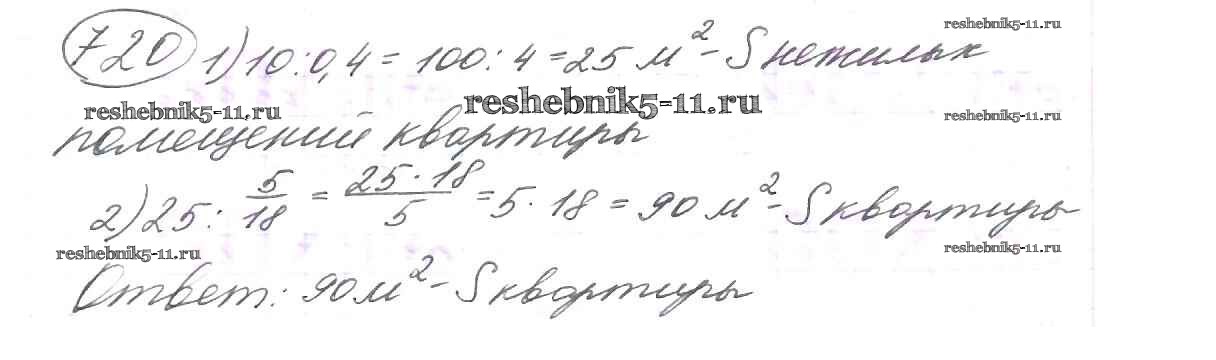 reshebnik5-11.ru
720 1) 10:0,4 = 100:4 = 25 м² - S нежилых
reshebnik5-11.ru reshebnik5-11.ru reshebnik5-11.ru
помещений квартиры
2) 25 : 5/18 = 25·18/5 = 5·18 = 90 м² - S квартиры
reshebnik5-11.ru reshebnik5-11.ru
Ответ: 90 м² - S квартиры